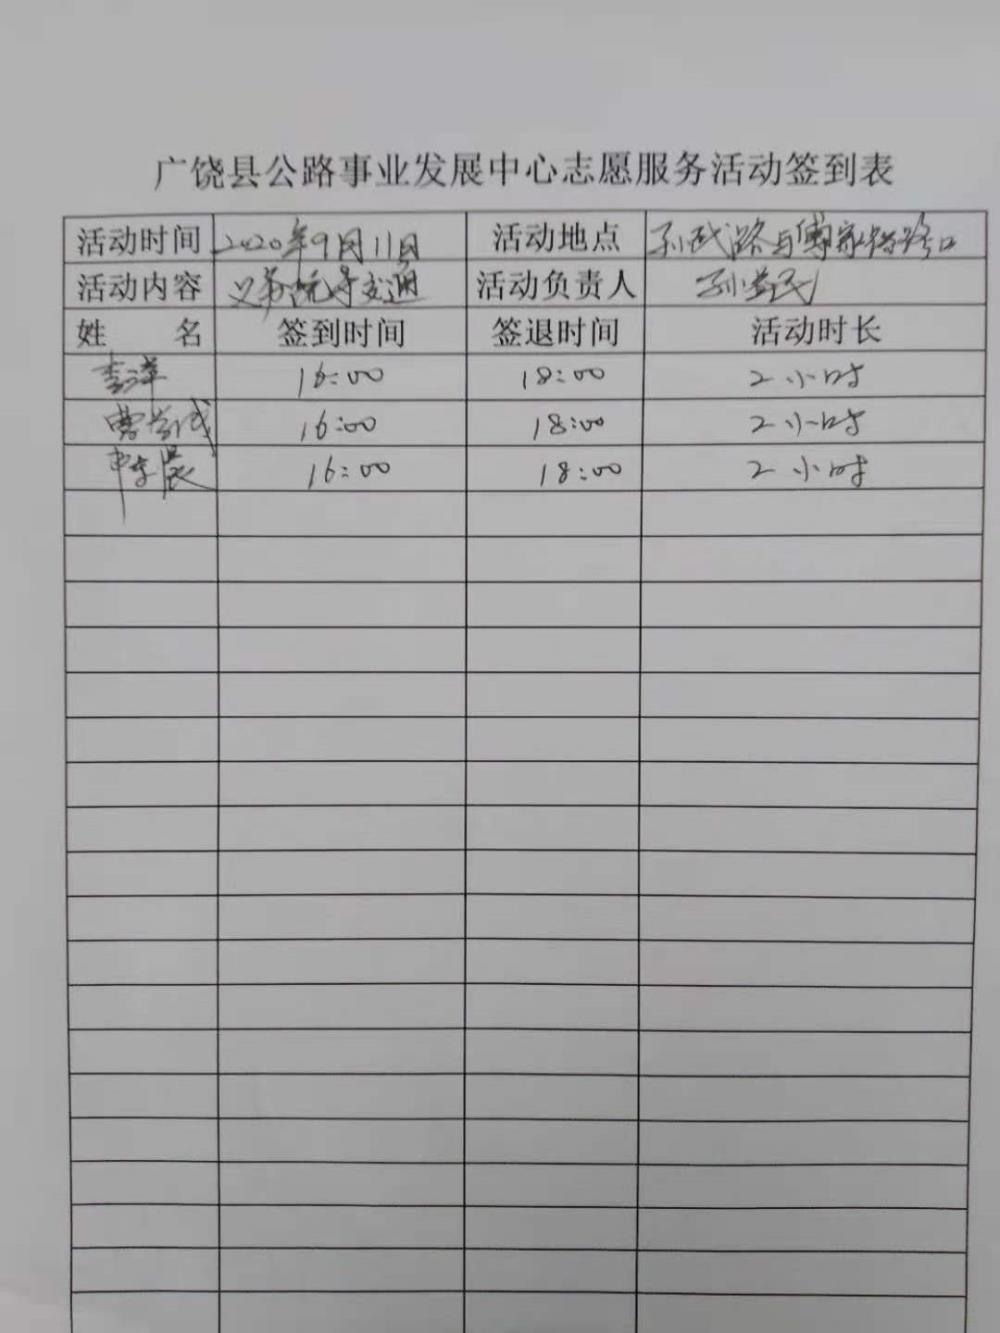 广饶县公路事业发展中心志愿服务活动签到表
活动时间 2020年9月11日 活动地点 孙武路与傅家路路口
活动内容 义务疏导交通 活动负责人 孙益民
姓 名 签到时间 签退时间 活动时长
李洋 16:00 18:00 2小时
曹学成 16:00 18:00 2小时
16:00 18:00 2小时